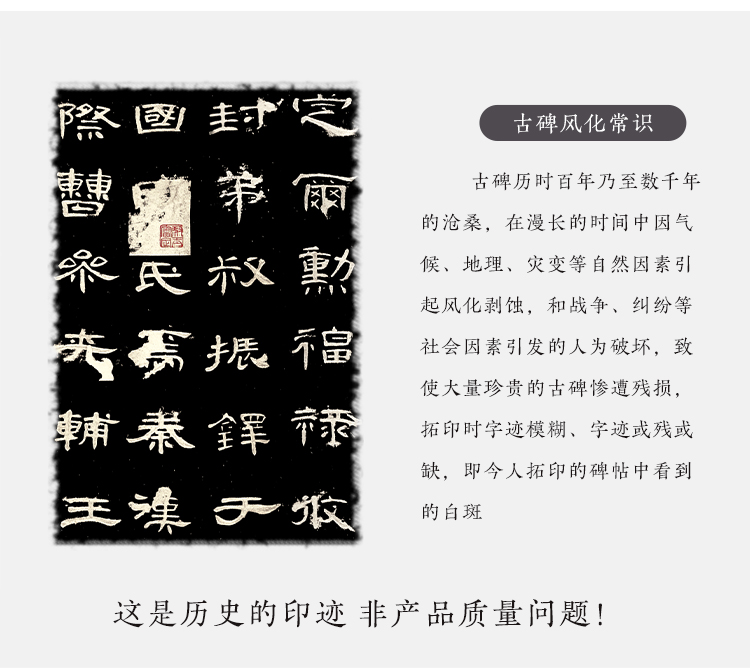 古碑风化常识
定爾勲福祿攸
封弟叔振鐸于
國氏焉秦漢
際曹參夾輔王
古碑历时百年乃至数千年
的沧桑，在漫长的时间中因气
候、地理、灾变等自然因素引
起风化剥蚀，和战争、纠纷等
社会因素引发的人为破坏，致
使大量珍贵的古碑惨遭残损，
拓印时字迹模糊、字迹或残或
缺，即今人拓印的碑帖中看到
的白斑
这是历史的印迹 非产品质量问题！